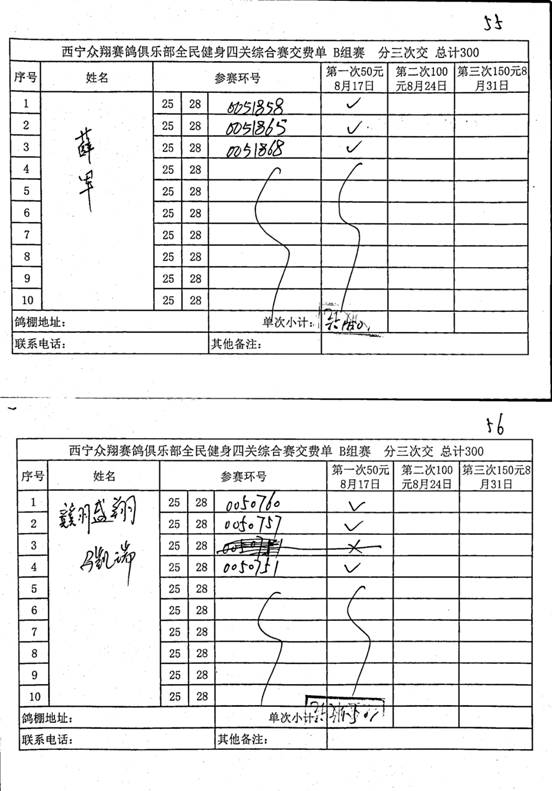 55
西宁众翔赛鸽俱乐部全民健身四关综合赛交费单 B组赛 分三次交 总计300
序号 姓名 参赛环号 第一次50元8月17日 第二次100元8月24日 第三次150元8月31日
1 25 28 0051858 ✓
2 25 28 0051865 ✓
3 25 28 0051868 ✓
4 25 28
5 25 28
6 25 28
7 25 28
8 25 28
9 25 28
10 25 28
薛军
鸽棚地址： 单次小计：
联系电话： 其他备注：
56
西宁众翔赛鸽俱乐部全民健身四关综合赛交费单 B组赛 分三次交 总计300
序号 姓名 参赛环号 第一次50元8月17日 第二次100元8月24日 第三次150元8月31日
1 25 28 0050760 ✓
2 25 28 0050757 ✓
3 25 28 ×
4 25 28 0050751 ✓
5 25 28
6 25 28
7 25 28
8 25 28
9 25 28
10 25 28
盛翔
马凯
鸽棚地址： 单次小计
联系电话： 其他备注：